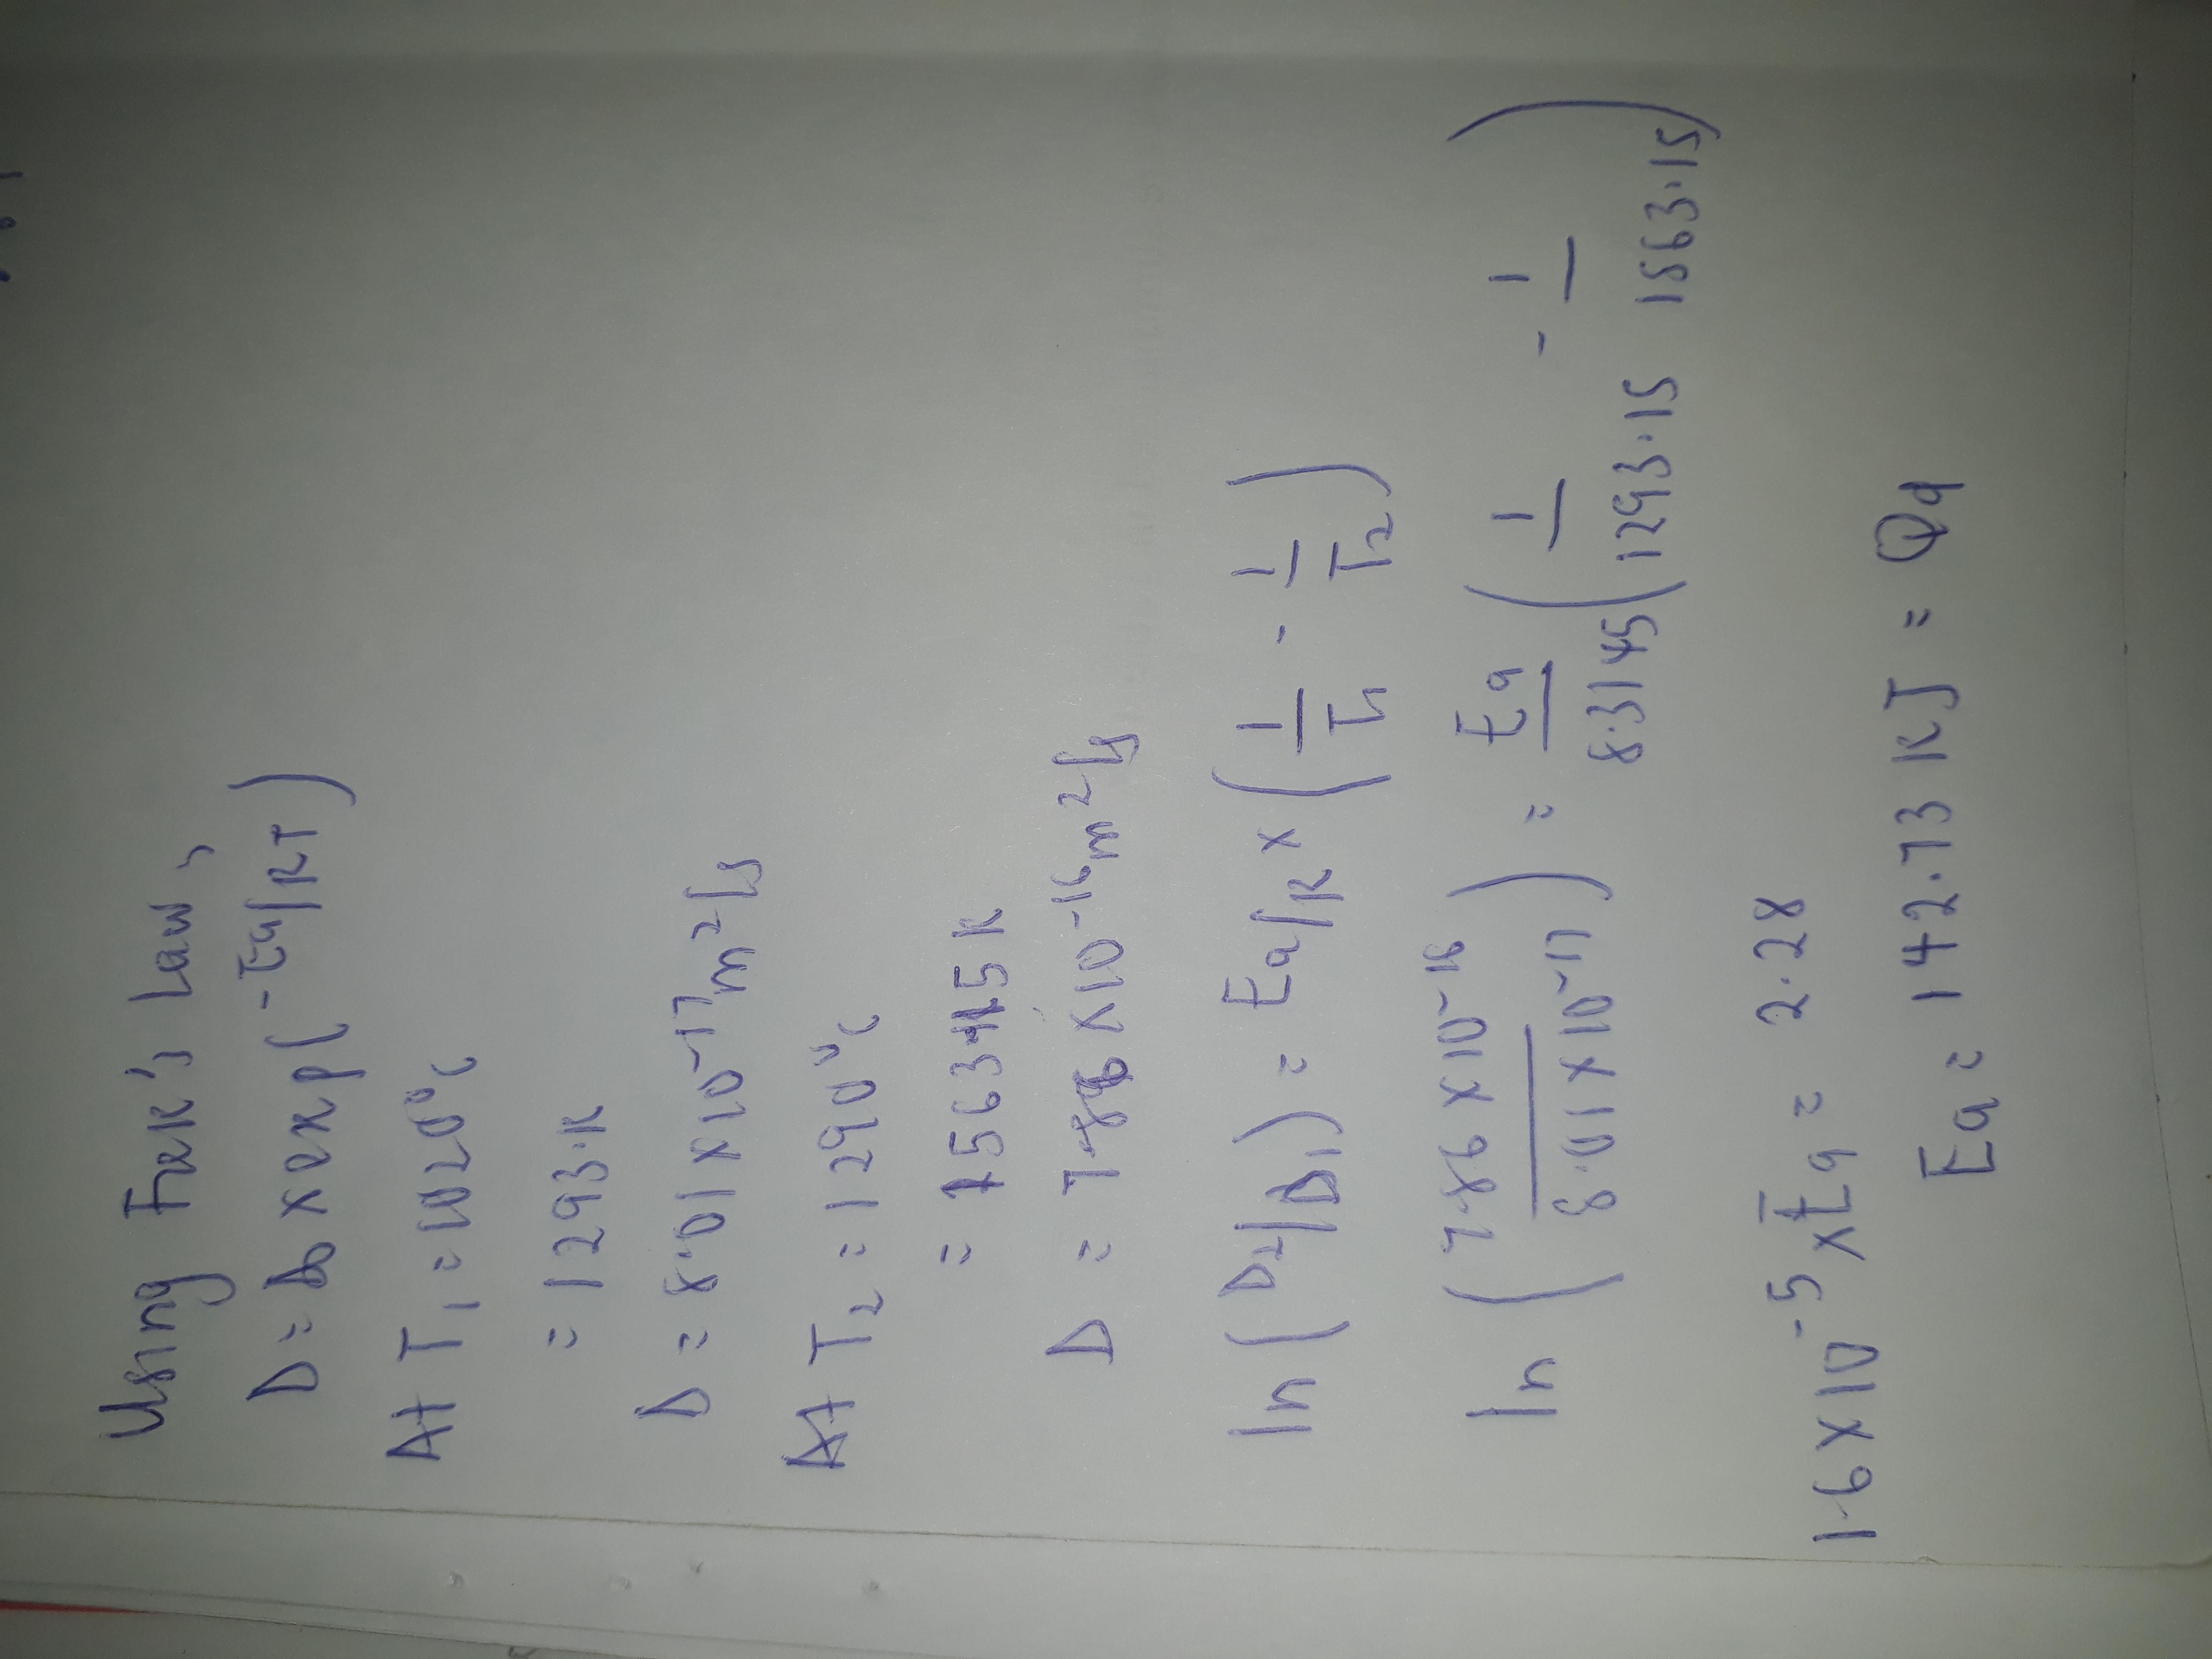 Using Fick's Law,
D = Do x exp(-Ea/RT)
At T1 = 1020°C
= 1293.K
D = 8.01 x 10^-17 m^2/s
At T2 = 1290°C
= 1563.15K
D = 7.86 x 10^-16 m^2/s
ln(D2/D1) = Ea/R x (1/T1 - 1/T2)
ln(7.86 x 10^-16 / 8.01 x 10^-17) = Ea/8.3145 (1/1293.15 - 1/1563.15)
1.6 x 10^-5 x Ea = 2.28
Ea = 142.73 KJ = Qd